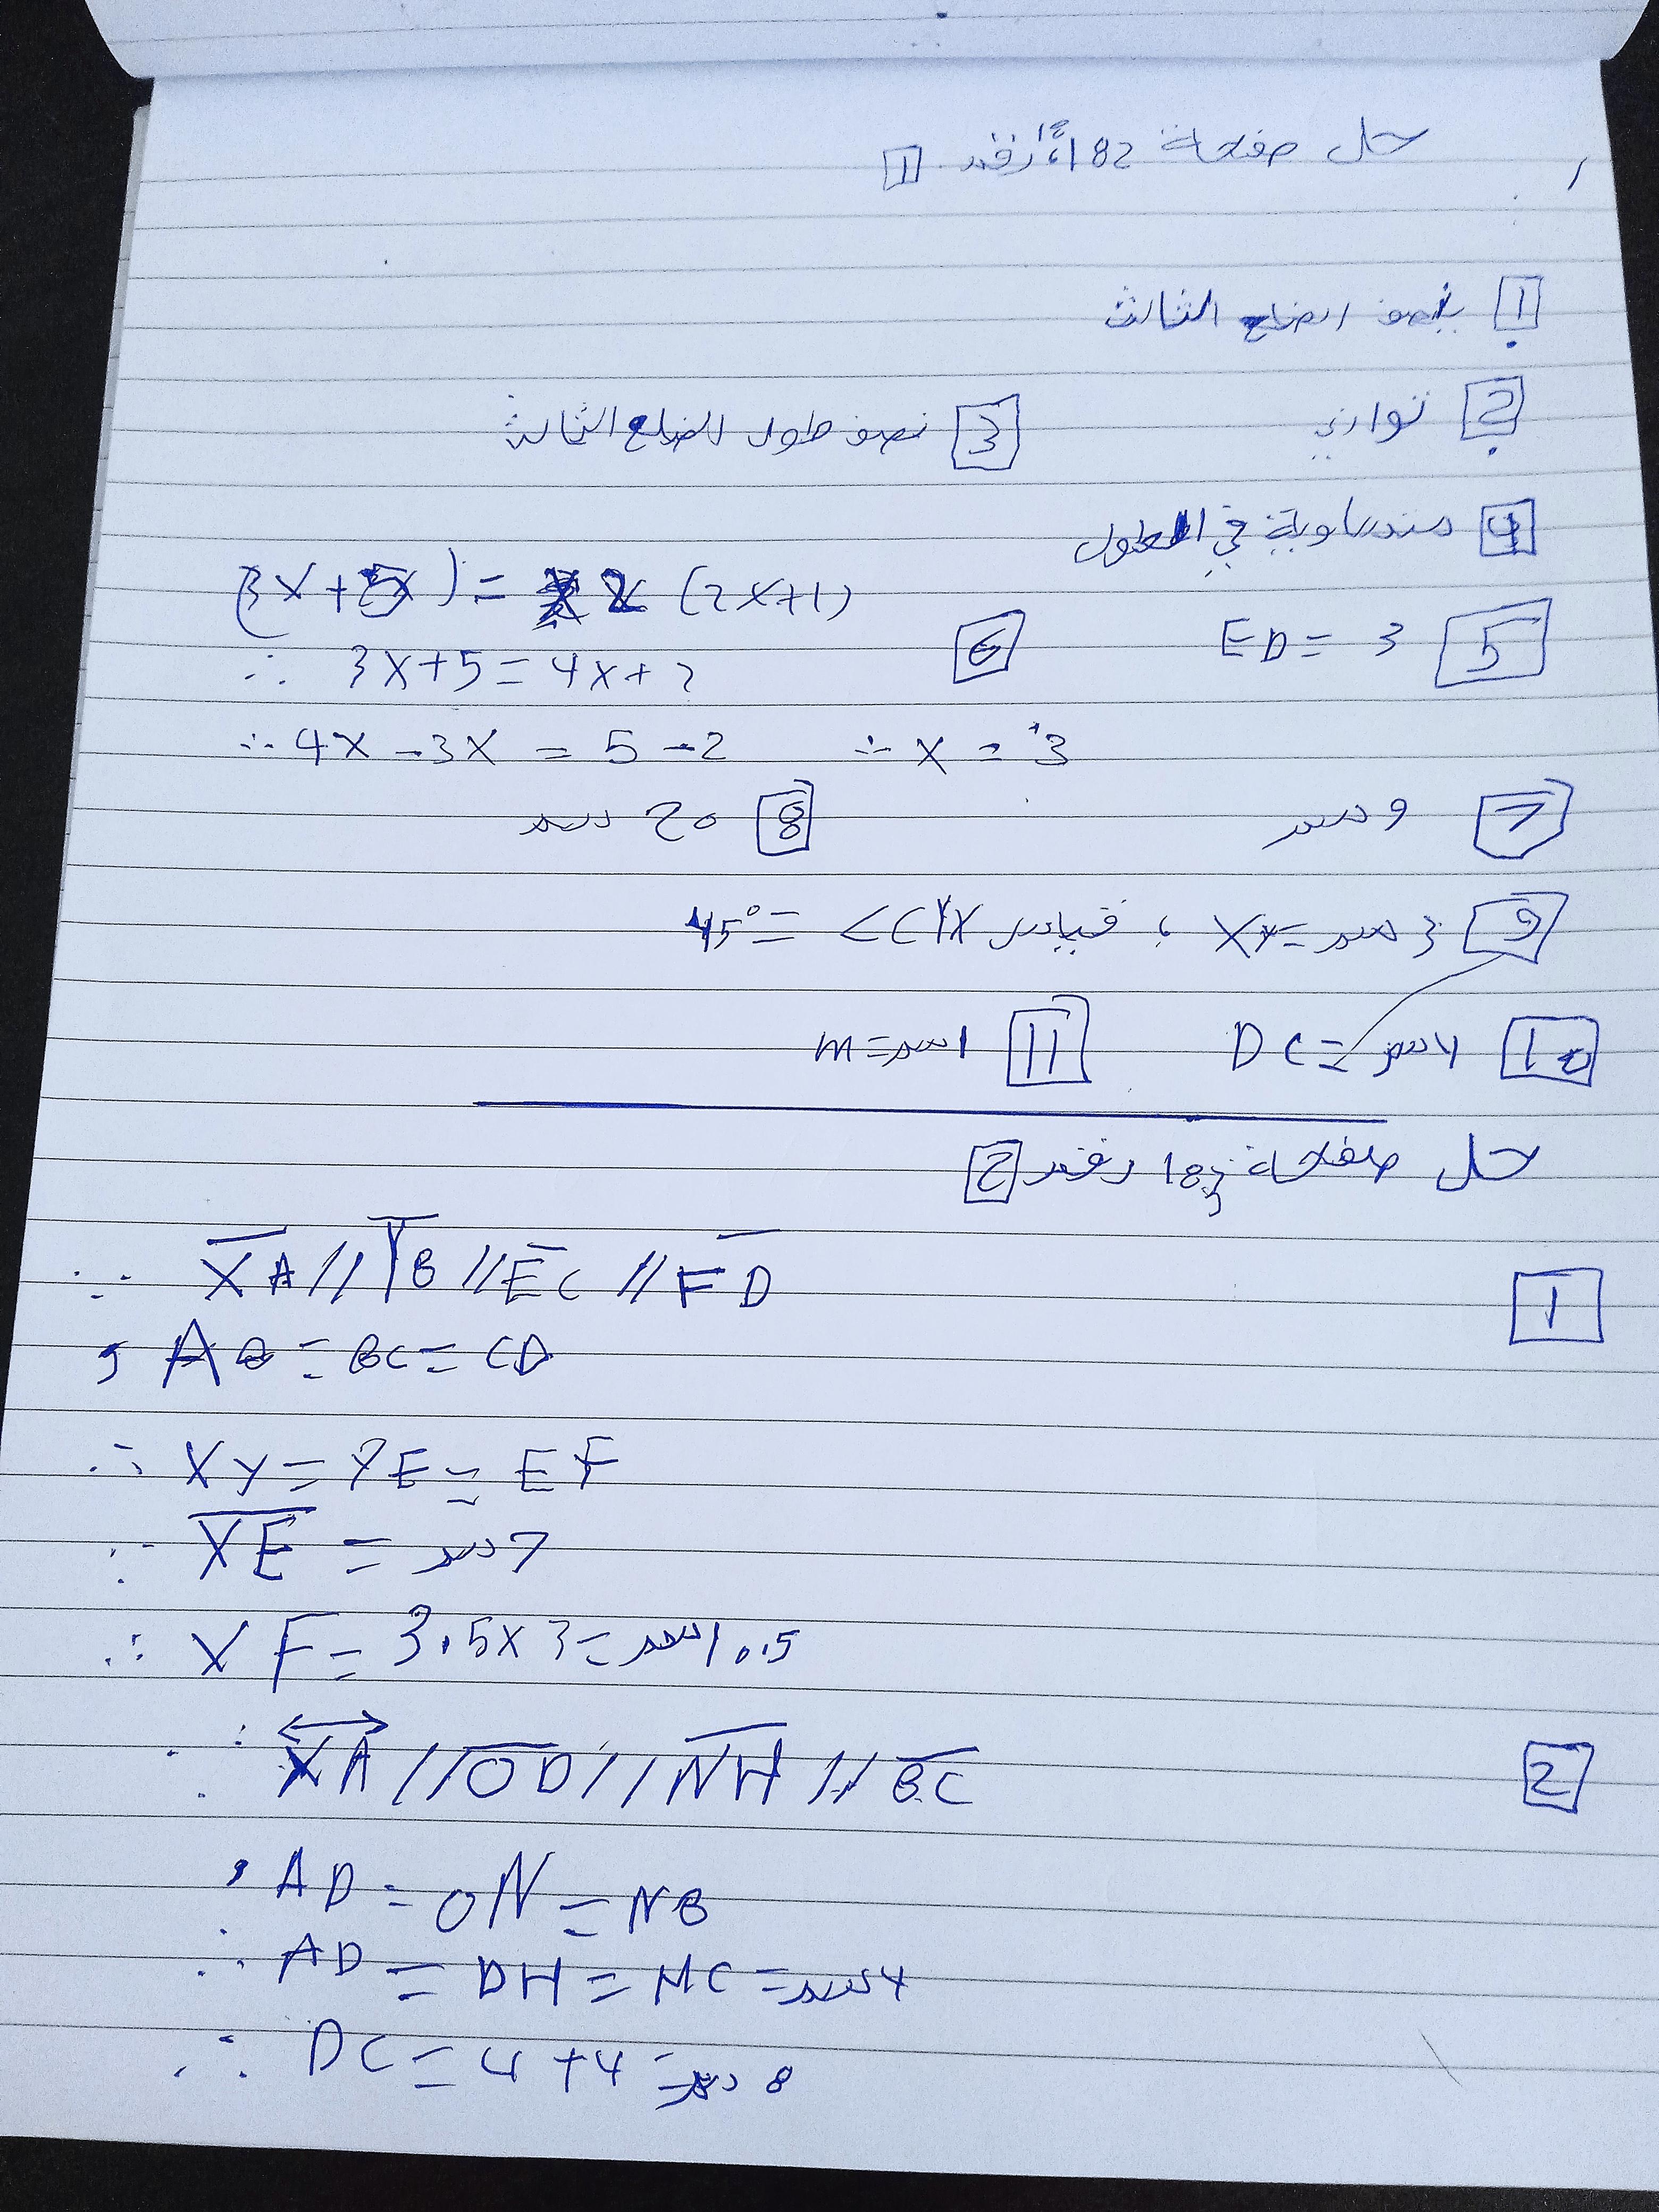 حل صفحة 182، أرقم 1
1 ينصف الضلع الثالث
2 توازي 3 نصف طول الضلع الثالث
4 متساوية في الطول
(3x+5) = 2 (2x+1)
5 ED = 3 6
∴ 3x+5 = 4x+2
∴ 4x - 3x = 5 - 2 ∴ x = 3
7 9 سم 8 20 سم
9 XY = 3 سم ، قياس <CYX = 45°
10 DC = 4 سم 11 m = 1 سم
حل صفحة 183 رقم 2
1 ∵ XA // YB // EC // FD
, AB = BC = CD
∴ XY = YE = EF
∵ XE = 7 سم
∴ XF = 3.5 x 3 = 10.5 سم
2 ∵ XA // OD // NH // BC
, AD = ON = NB
∴ AD = DH = HC = 4 سم
∴ DC = 4 + 4 = 8 سم